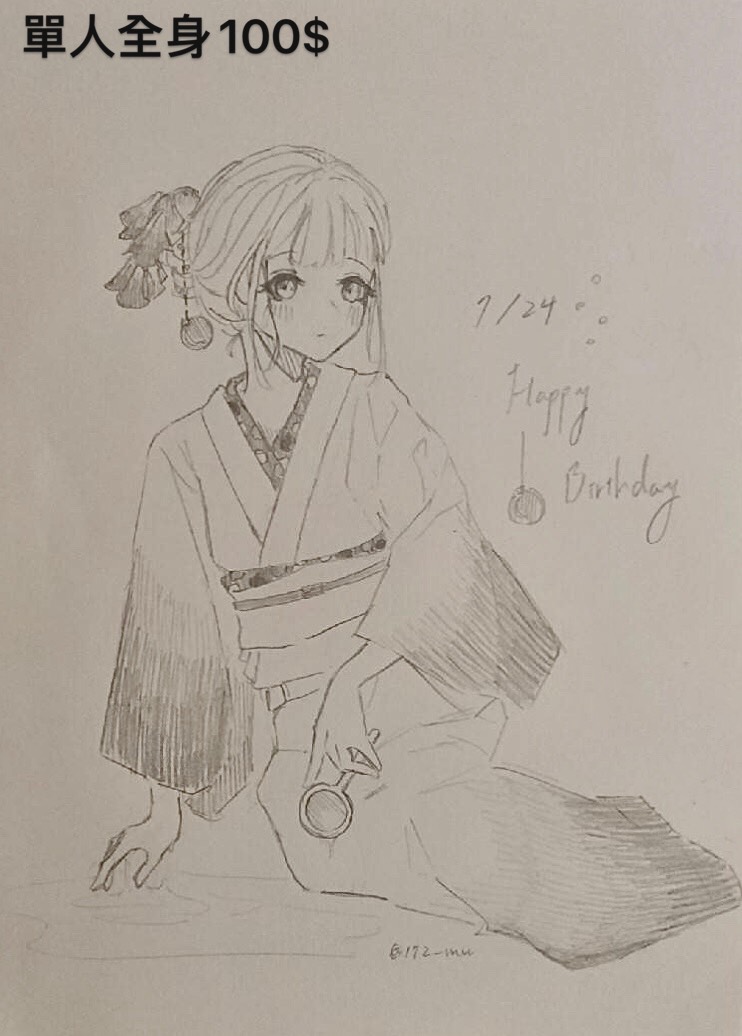 單人全身100$
7/24
Happy
Birthday
@172_mu